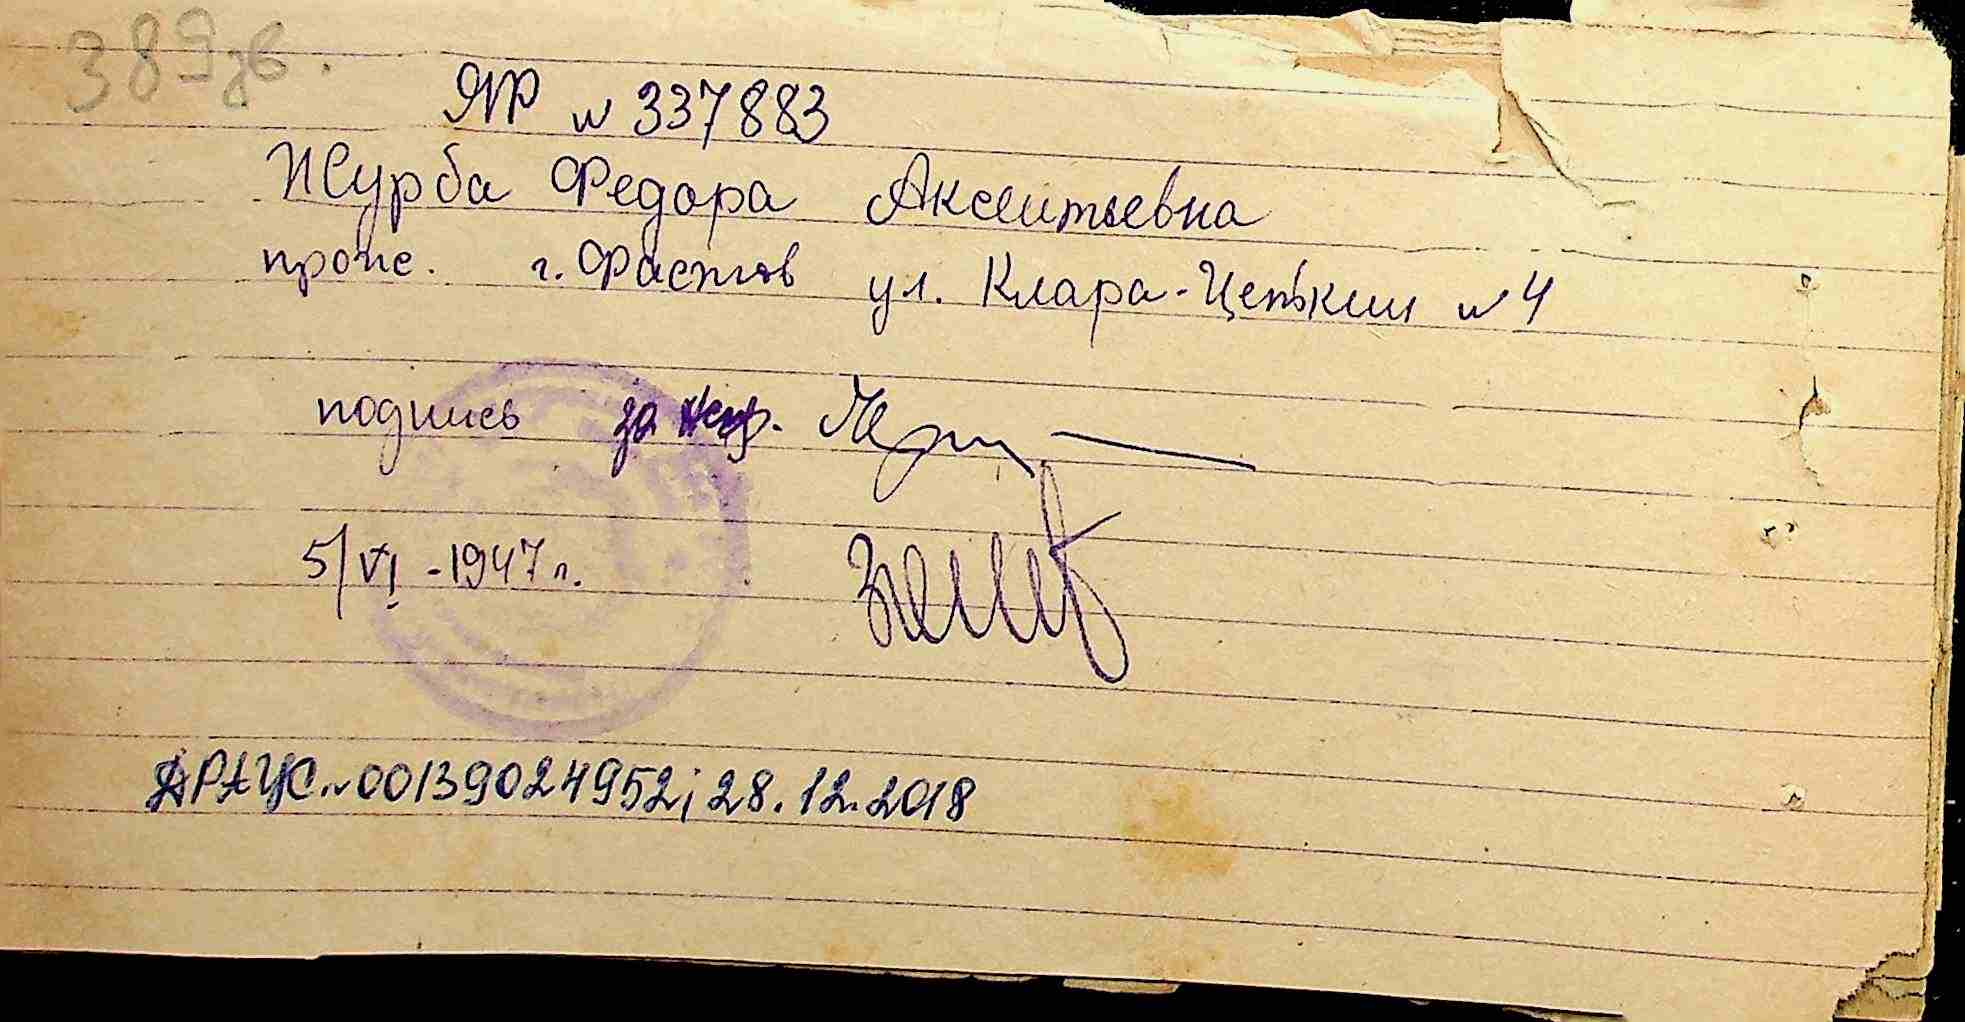 389зв.
ЯР № 337883
Журба Федора Аксентьевна
пропс. г. Фастов ул. Клара-Цеткин № 4
подпись за негр.
5/VI - 1947 г.
ДРАЦС. № 00139024952; 28.12.2018